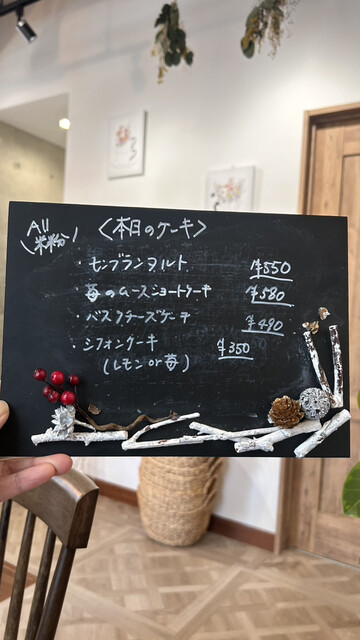 All
米粉!
〈本日のケーキ〉
・モンブランタルト ¥550
・苺のムースショートケーキ ¥580
・バスクチーズケーキ ¥490
・シフォンケーキ ¥350
(レモン or 苺)